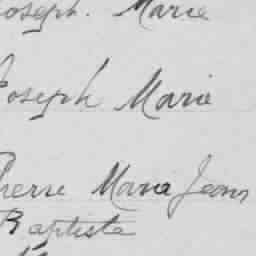 Joseph. Marie
Joseph Marie
Pierre Marie Jean
Baptiste